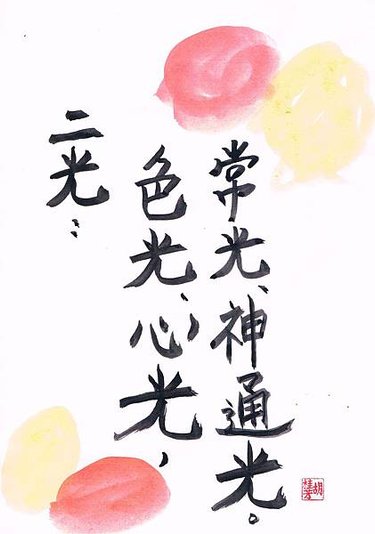 二光：
色光、心光，
常光、神通光。
胡